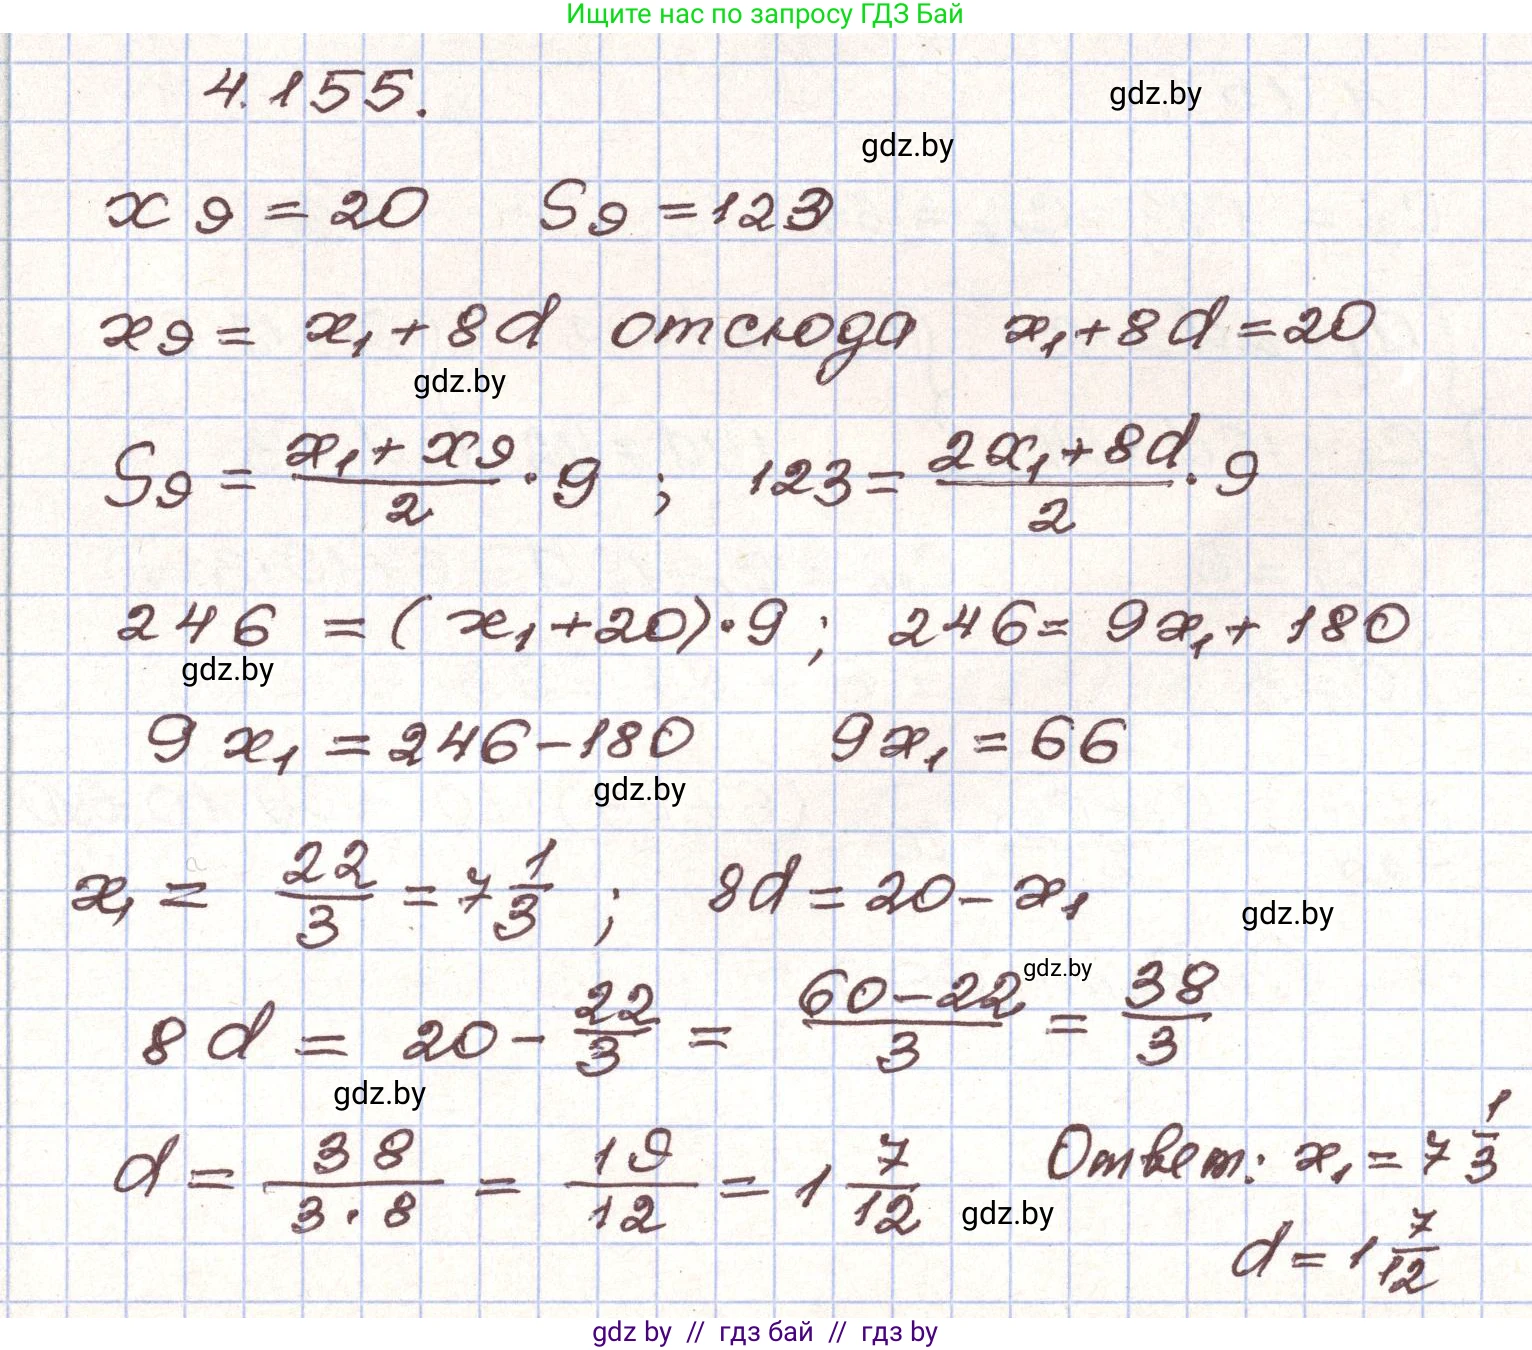 Ищите нас по запросу ГДЗ Бай
4.155.
gdz.by
gdz.by
x₉ = 20    S₉ = 123
x₉ = x₁ + 8d отсюда x₁ + 8d = 20
gdz.by
S₉ = (x₁ + x₉)/2 · 9 ; 123 = (2x₁ + 8d)/2 · 9
246 = (x₁ + 20) · 9 ; 246 = 9x₁ + 180
gdz.by
9x₁ = 246 - 180    9x₁ = 66
gdz.by
x₁ = 22/3 = 7 1/3 ; 8d = 20 - x₁
gdz.by
gdz.by
8d = 20 - 22/3 = (60 - 22)/3 = 38/3
gdz.by
d = 38/(3 · 8) = 19/12 = 1 7/12    Ответ: x₁ = 7 1/3
gdz.by
d = 1 7/12
gdz by // гдз бай // гдз by